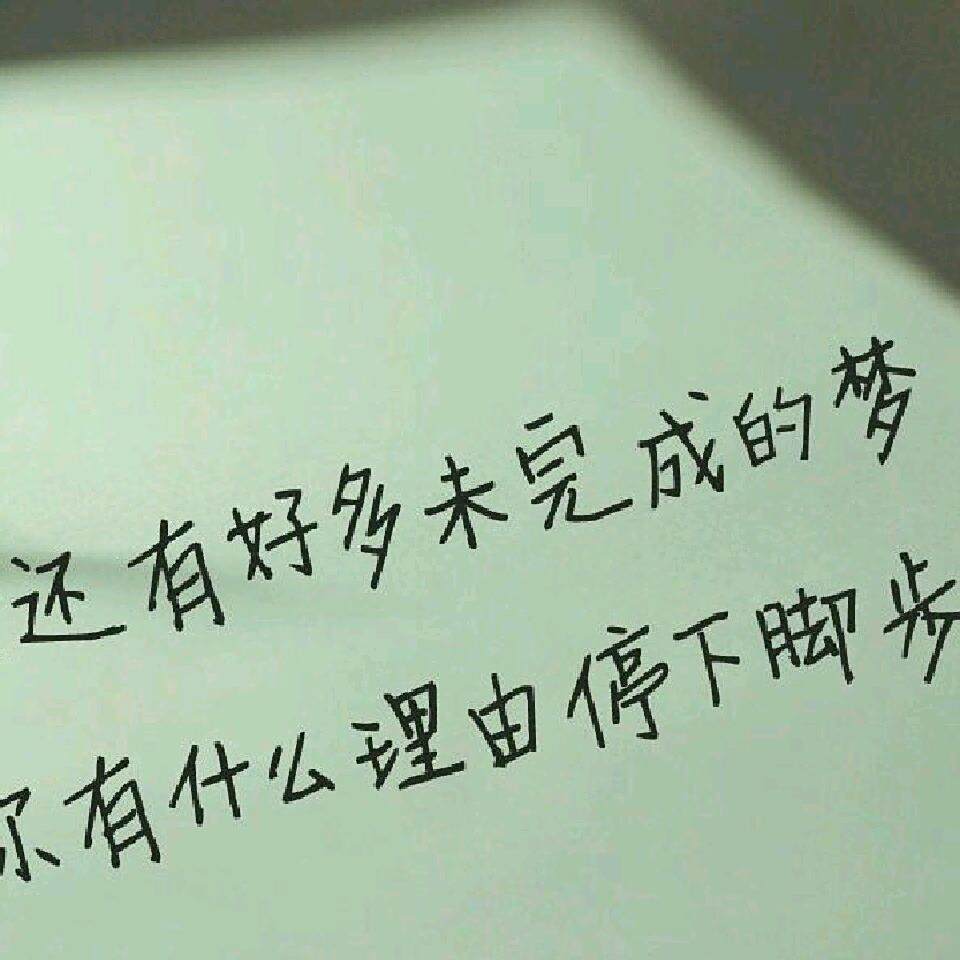 还有好多未完成的梦
你有什么理由停下脚步